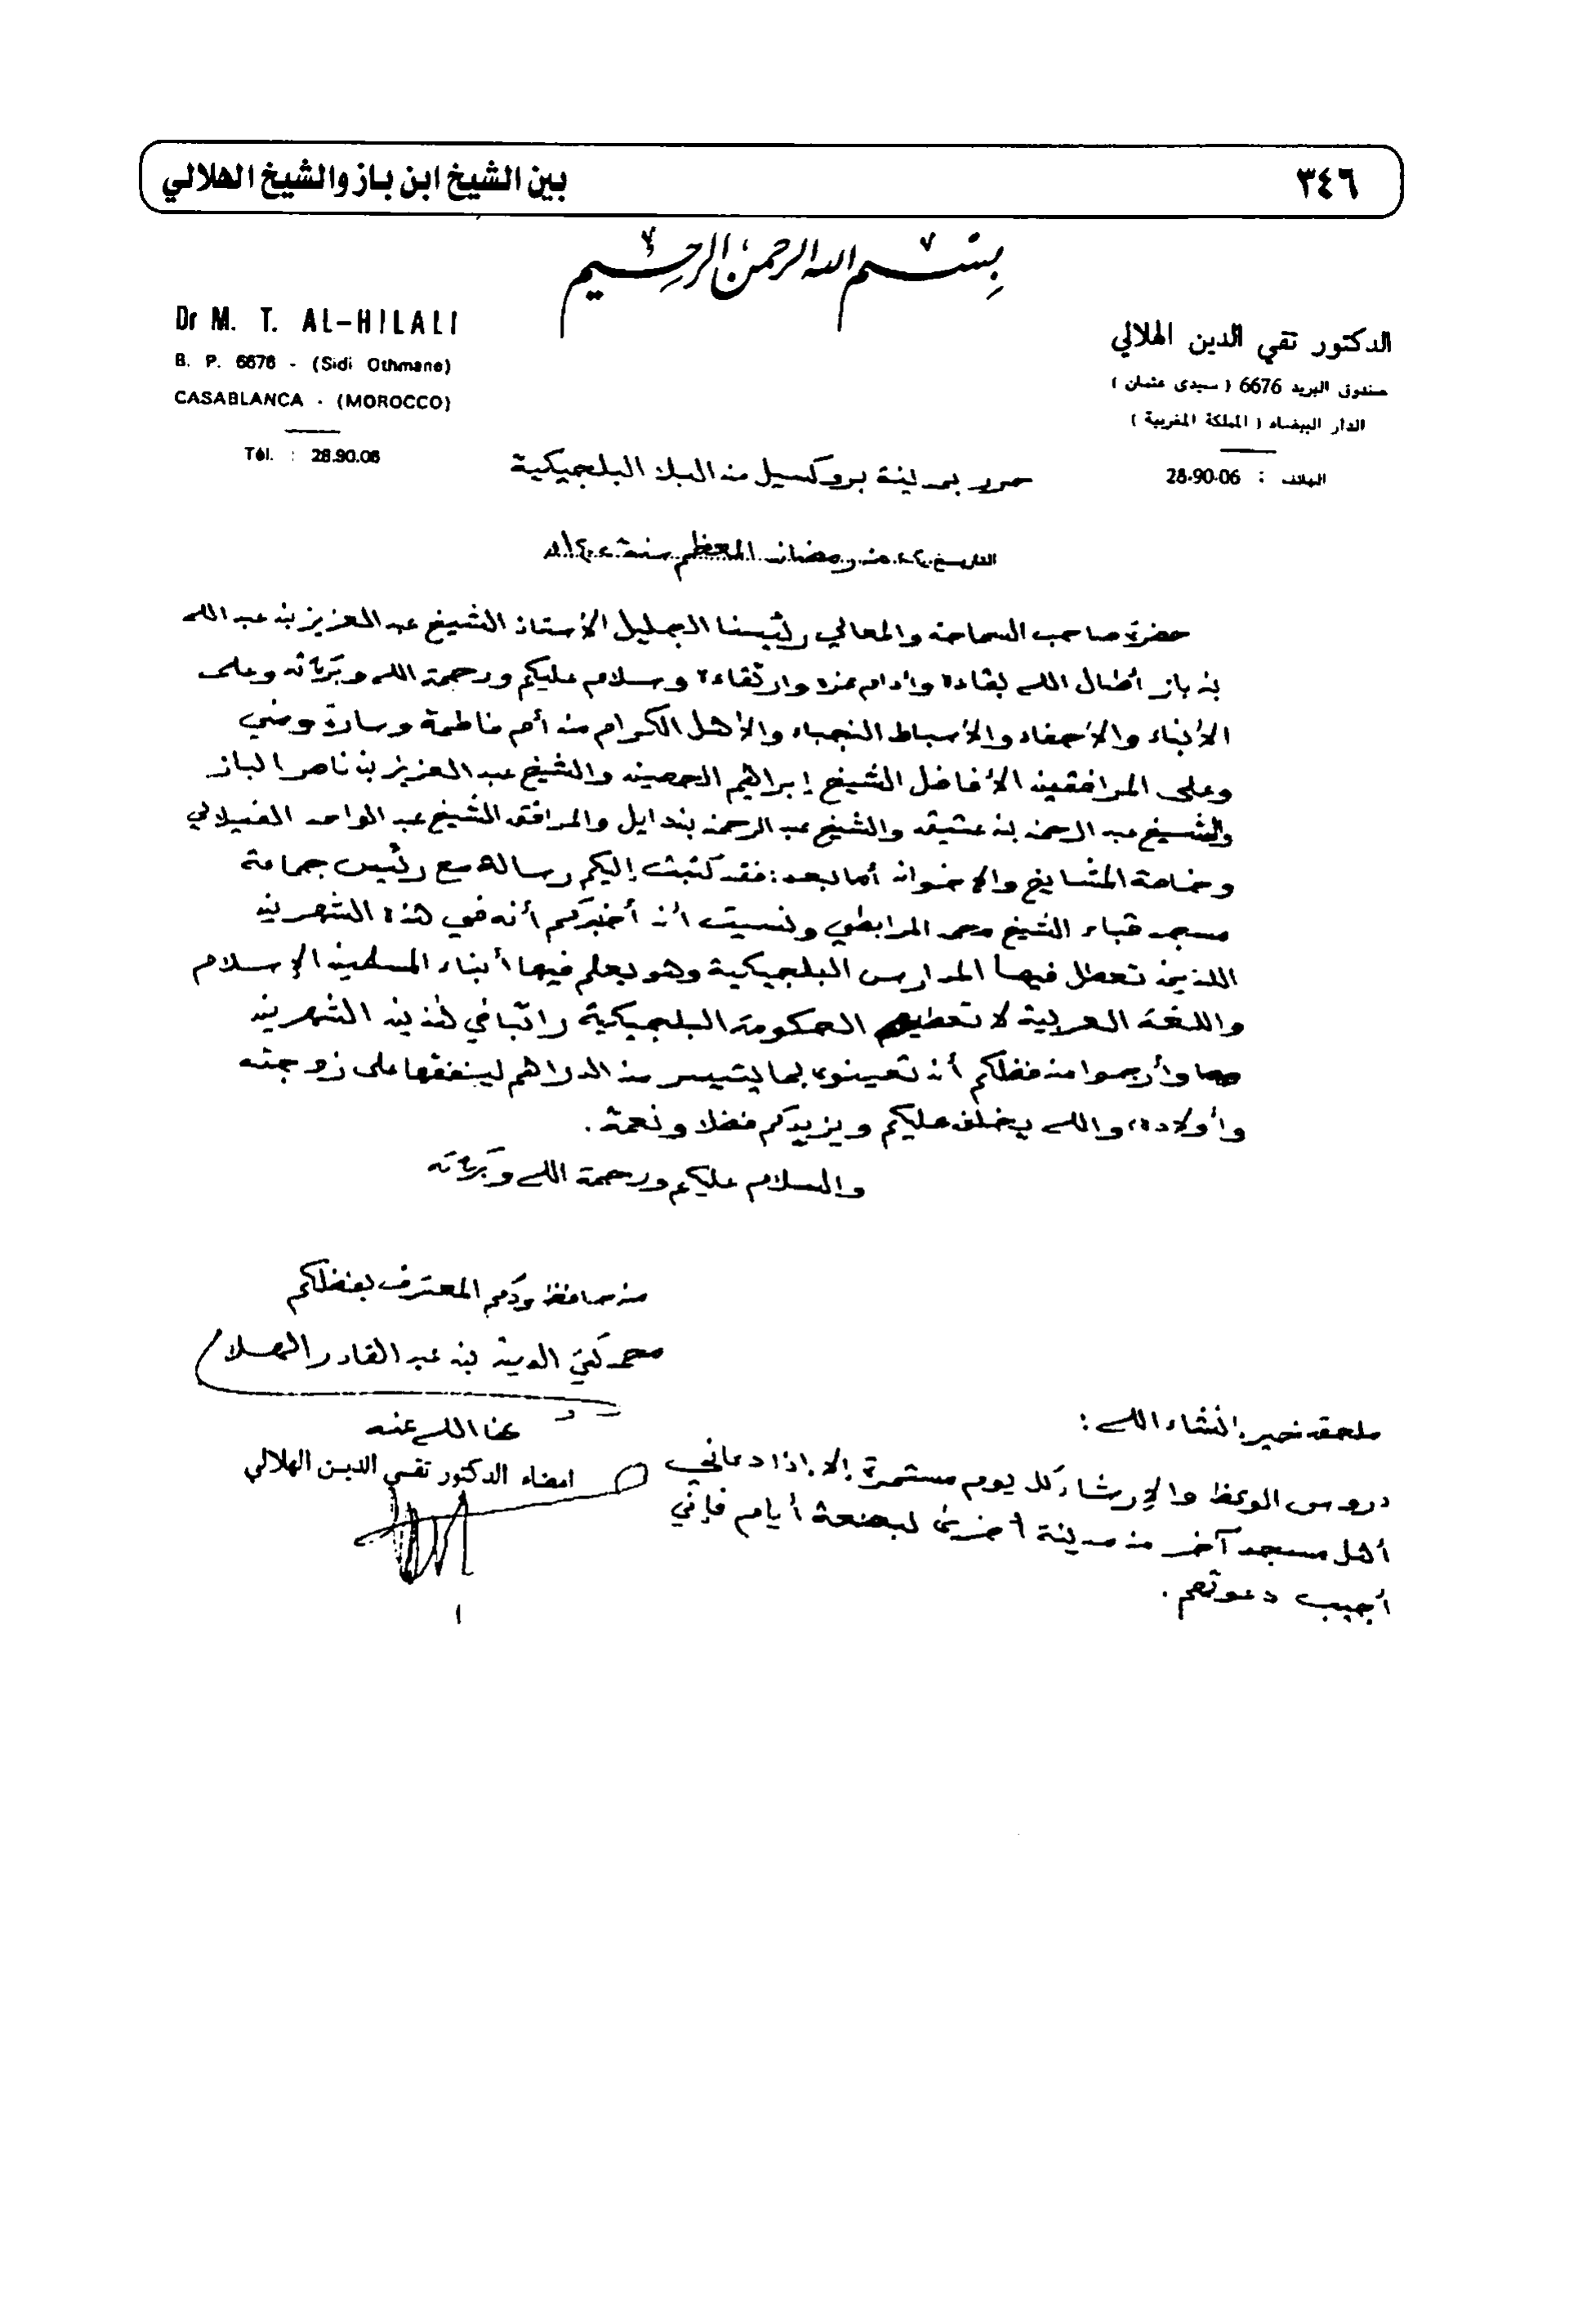 ٣٤٦
بين الشيخ ابن باز والشيخ الهلالي
بسم الله الرحمن الرحيم
الدكتور تقي الدين الهلالي
صندوق البريد 6676 (سيدي عثمان)
الدار البيضاء (المملكة المغربية)
الهاتف : 28.90.06
Dr M. T. AL-HILALI
B. P. 6676 - (Sidi Othmane)
CASABLANCA - (MOROCCO)
Tél. : 28.90.06
حرر بمدينة بروكسيل من البلاد البلجيكية
التاريخ من رمضان المعظم سنة
حضرة صاحب السماحة والمعالي رئيسنا الجليل الأستاذ الشيخ عبد العزيز بن عبد الله
بن باز أطال الله بقاءه وأدام عزه وارتقاءه وسلام عليكم ورحمة الله وبركاته وعلى
الأبناء والأحفاد والأسباط النجباء والأهل الكرام من أم فاطمة وسارة ومني
وعلى المرافقين الأفاضل الشيخ إبراهيم الحصين والشيخ عبد العزيز بن ناصر الباز
والشيخ عبد الرحمن بن عتيق والشيخ عبد الرحمن بن دايل والمرافق الشيخ عبد الواحد الفيلالي
وخاصة المشايخ والإخوان أما بعد: فقد كتبت إليكم رسالة مع رئيس جماعة
مسجد قباء الشيخ محمد المرابطي ونسيت أن أخبركم أنه في هذه الشهرين
اللذين تعطل فيها المدارس البلجيكية وهو يعلم فيها أبناء المسلمين الإسلام
واللغة العربية لا تعطيهم الحكومة البلجيكية راتبا في هذين الشهرين
وأرجوا من فضلكم أن تعينوه بما يتيسر من الدراهم لينفقها على زوجته
وأولاده، والله يخلف عليكم ويزيدكم فضلا ونعمة.
والسلام عليكم ورحمة الله وبركاته
من حافظ ودكم المعترف بفضلكم
محمد تقي الدين بن عبد القادر الهلالي
عفا الله عنه
امضاء الدكتور تقي الدين الهلالي
ملحق خير إنشاء الله:
دروس الوعظ والإرشاد كل يوم مستمرة إلا إذا دعاني
أهل مسجد آخر من مدينة أخرى لبضعة أيام فإني
أجيب دعوتهم.